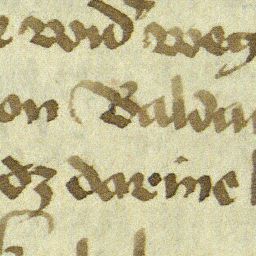 wid weg
on Balda
dz darine